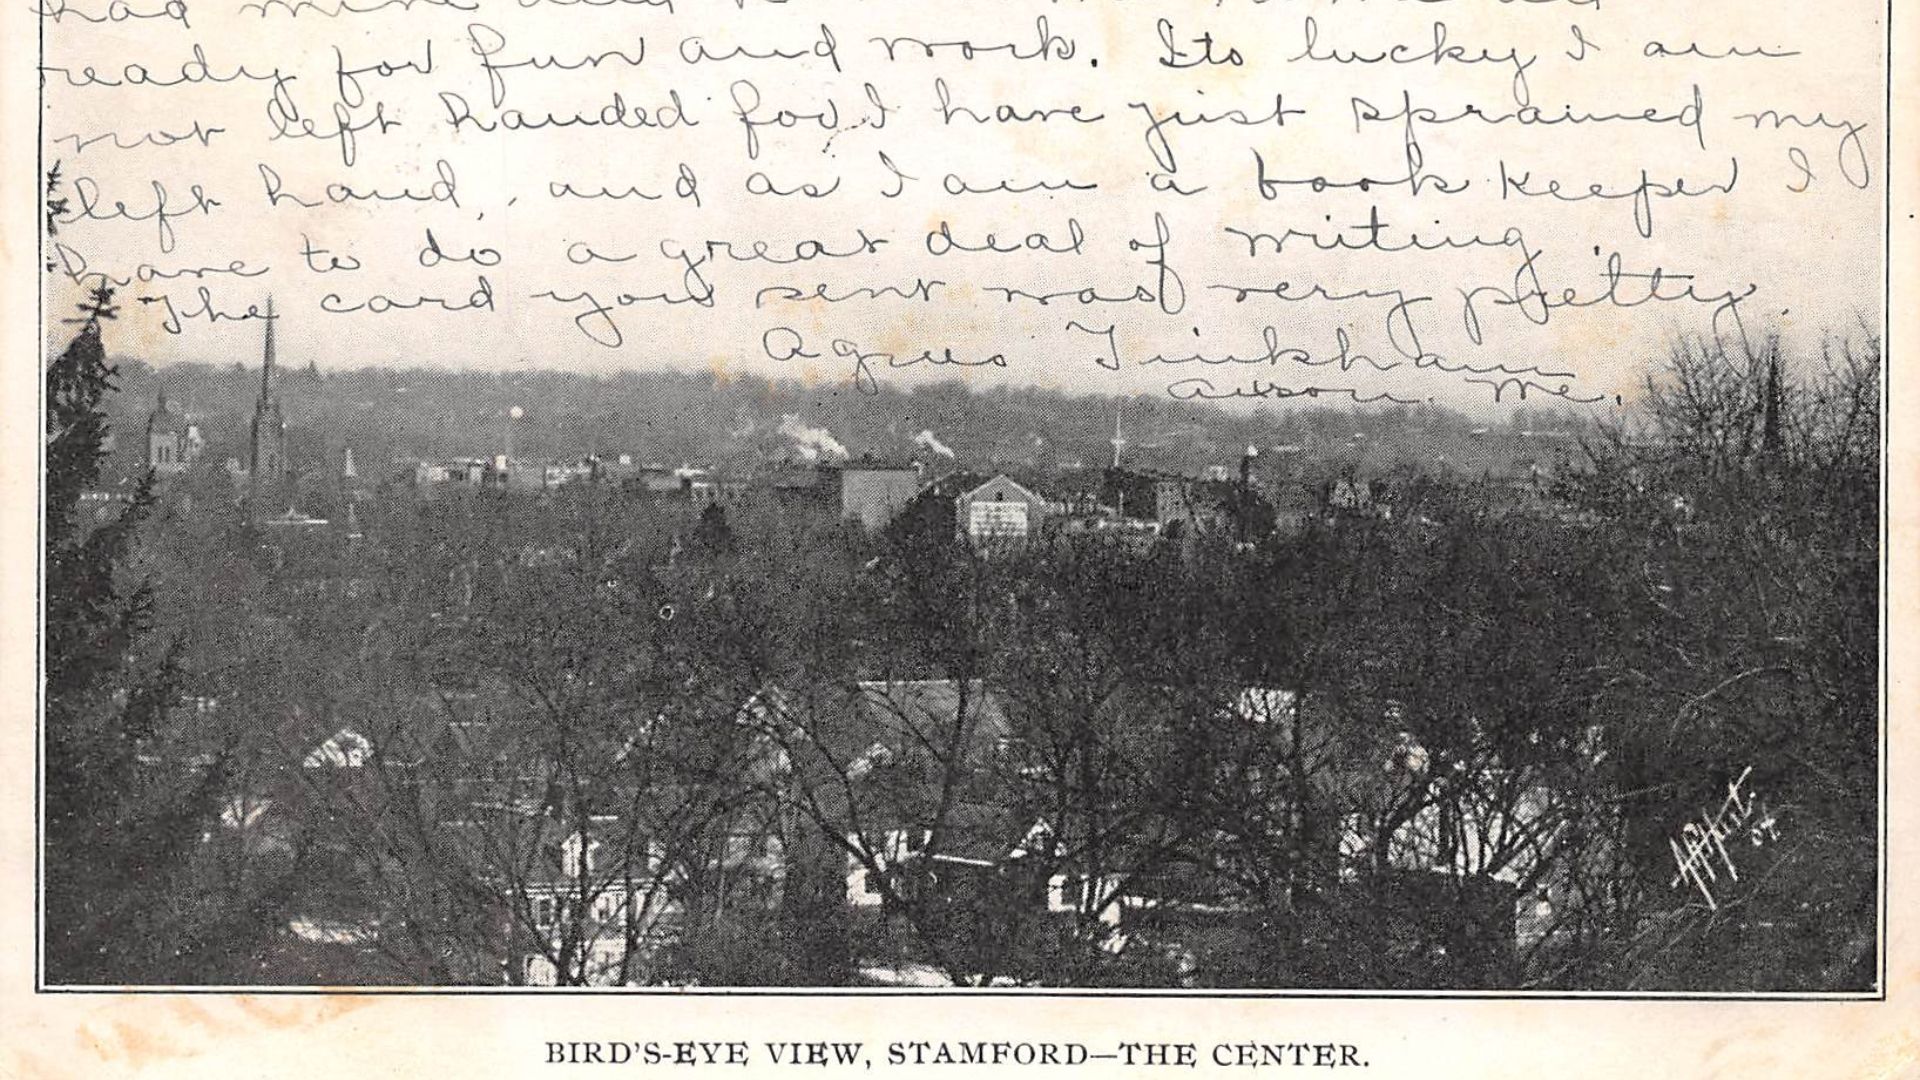 had mine and
ready for fun and work. Its lucky I am
not left handed for I have just sprained my
left hand, and as I am a book keeper I
have to do a great deal of writing.
The card you sent was very pretty.
Agnes Tinkham
Anson. Me.
04.
BIRD'S-EYE VIEW, STAMFORD—THE CENTER.